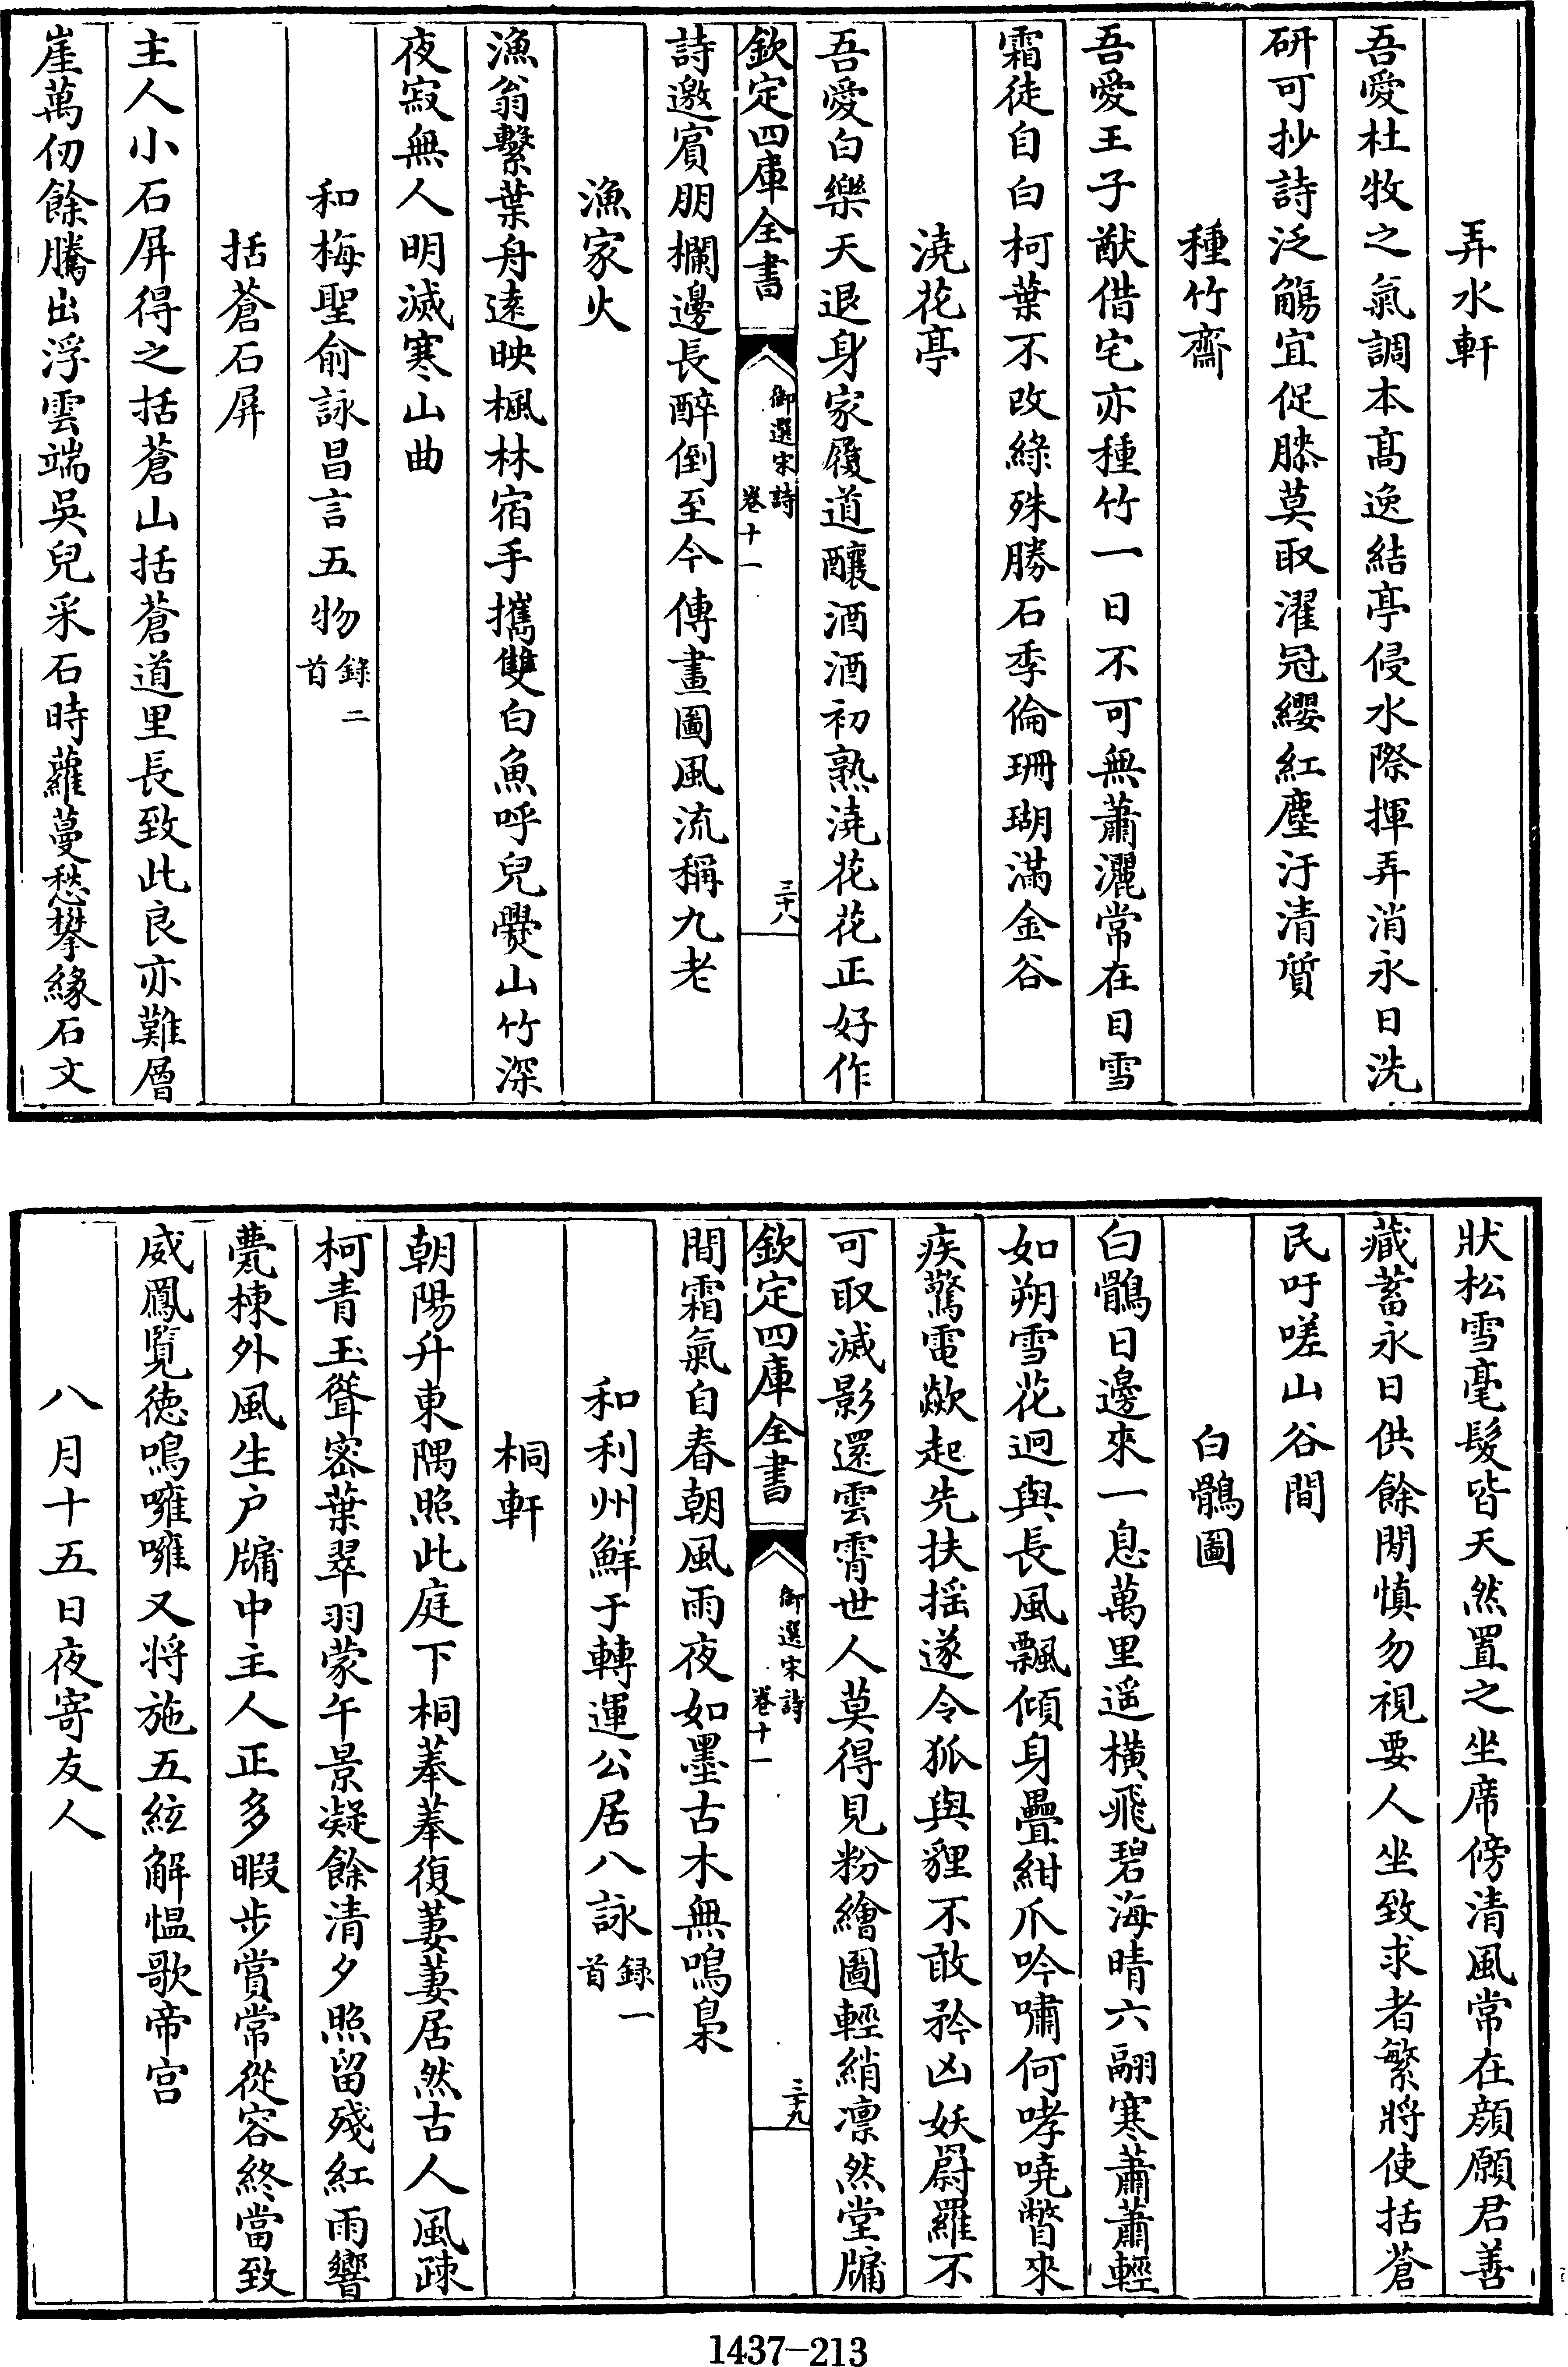 弄水軒
吾愛杜牧之氣調本髙逸結亭侵水際揮弄消永日洗
研可抄詩泛觴宜促膝莫取濯冠纓紅塵汙清質
種竹齋
吾愛王子猷借宅亦種竹一日不可無蕭灑常在目雪
霜徒自白柯葉不改綠殊勝石季倫珊瑚滿金谷
澆花亭
吾愛白樂天退身家履道釀酒酒初熟澆花花正好作
欽定四庫全書
御選宋詩
卷十一
三十八
詩邀賓朋欄邊長醉倒至今傳畫圖風流稱九老
漁家火
漁翁繫葉舟遠映楓林宿手攜雙白魚呼兒㸑山竹深
夜寂無人明滅寒山曲
和梅聖俞詠昌言五物錄二首
括蒼石屏
主人小石屏得之括蒼山括蒼道里長致此良亦難層
崖萬仞餘騰出浮雲端吳兒采石時蘿蔓愁攀緣石文
狀松雪毫髮皆天然置之坐席傍清風常在顔願君善
藏蓄永日供餘閒慎勿視要人坐致求者繁將使括蒼
民吁嗟山谷間
白鶻圖
白鶻日邊來一息萬里遥橫飛碧海晴六翮寒蕭蕭輕
如朔雪花迥與長風飄傾身疊紺爪吟嘯何哮嘵瞥來
疾驚電歘起先扶揺遂令狐與貍不敢矜凶妖罻羅不
可取滅影還雲霄世人莫得見粉繪圖輕綃凛然堂牖
欽定四庫全書
御選宋詩
卷十一
三十九
間霜氣自春朝風雨夜如墨古木無鳴梟
和利州鮮于轉運公居八詠録一首
桐軒
朝陽升東隅照此庭下桐菶菶復萋萋居然古人風疎
柯青玉聳密葉翠羽蒙午景凝餘清夕照留殘紅雨響
甍棟外風生户牖中主人正多暇步賞常從容終當致
威鳳覽徳鳴噰噰又将施五絃解愠歌帝宫
八月十五日夜寄友人
1437-213